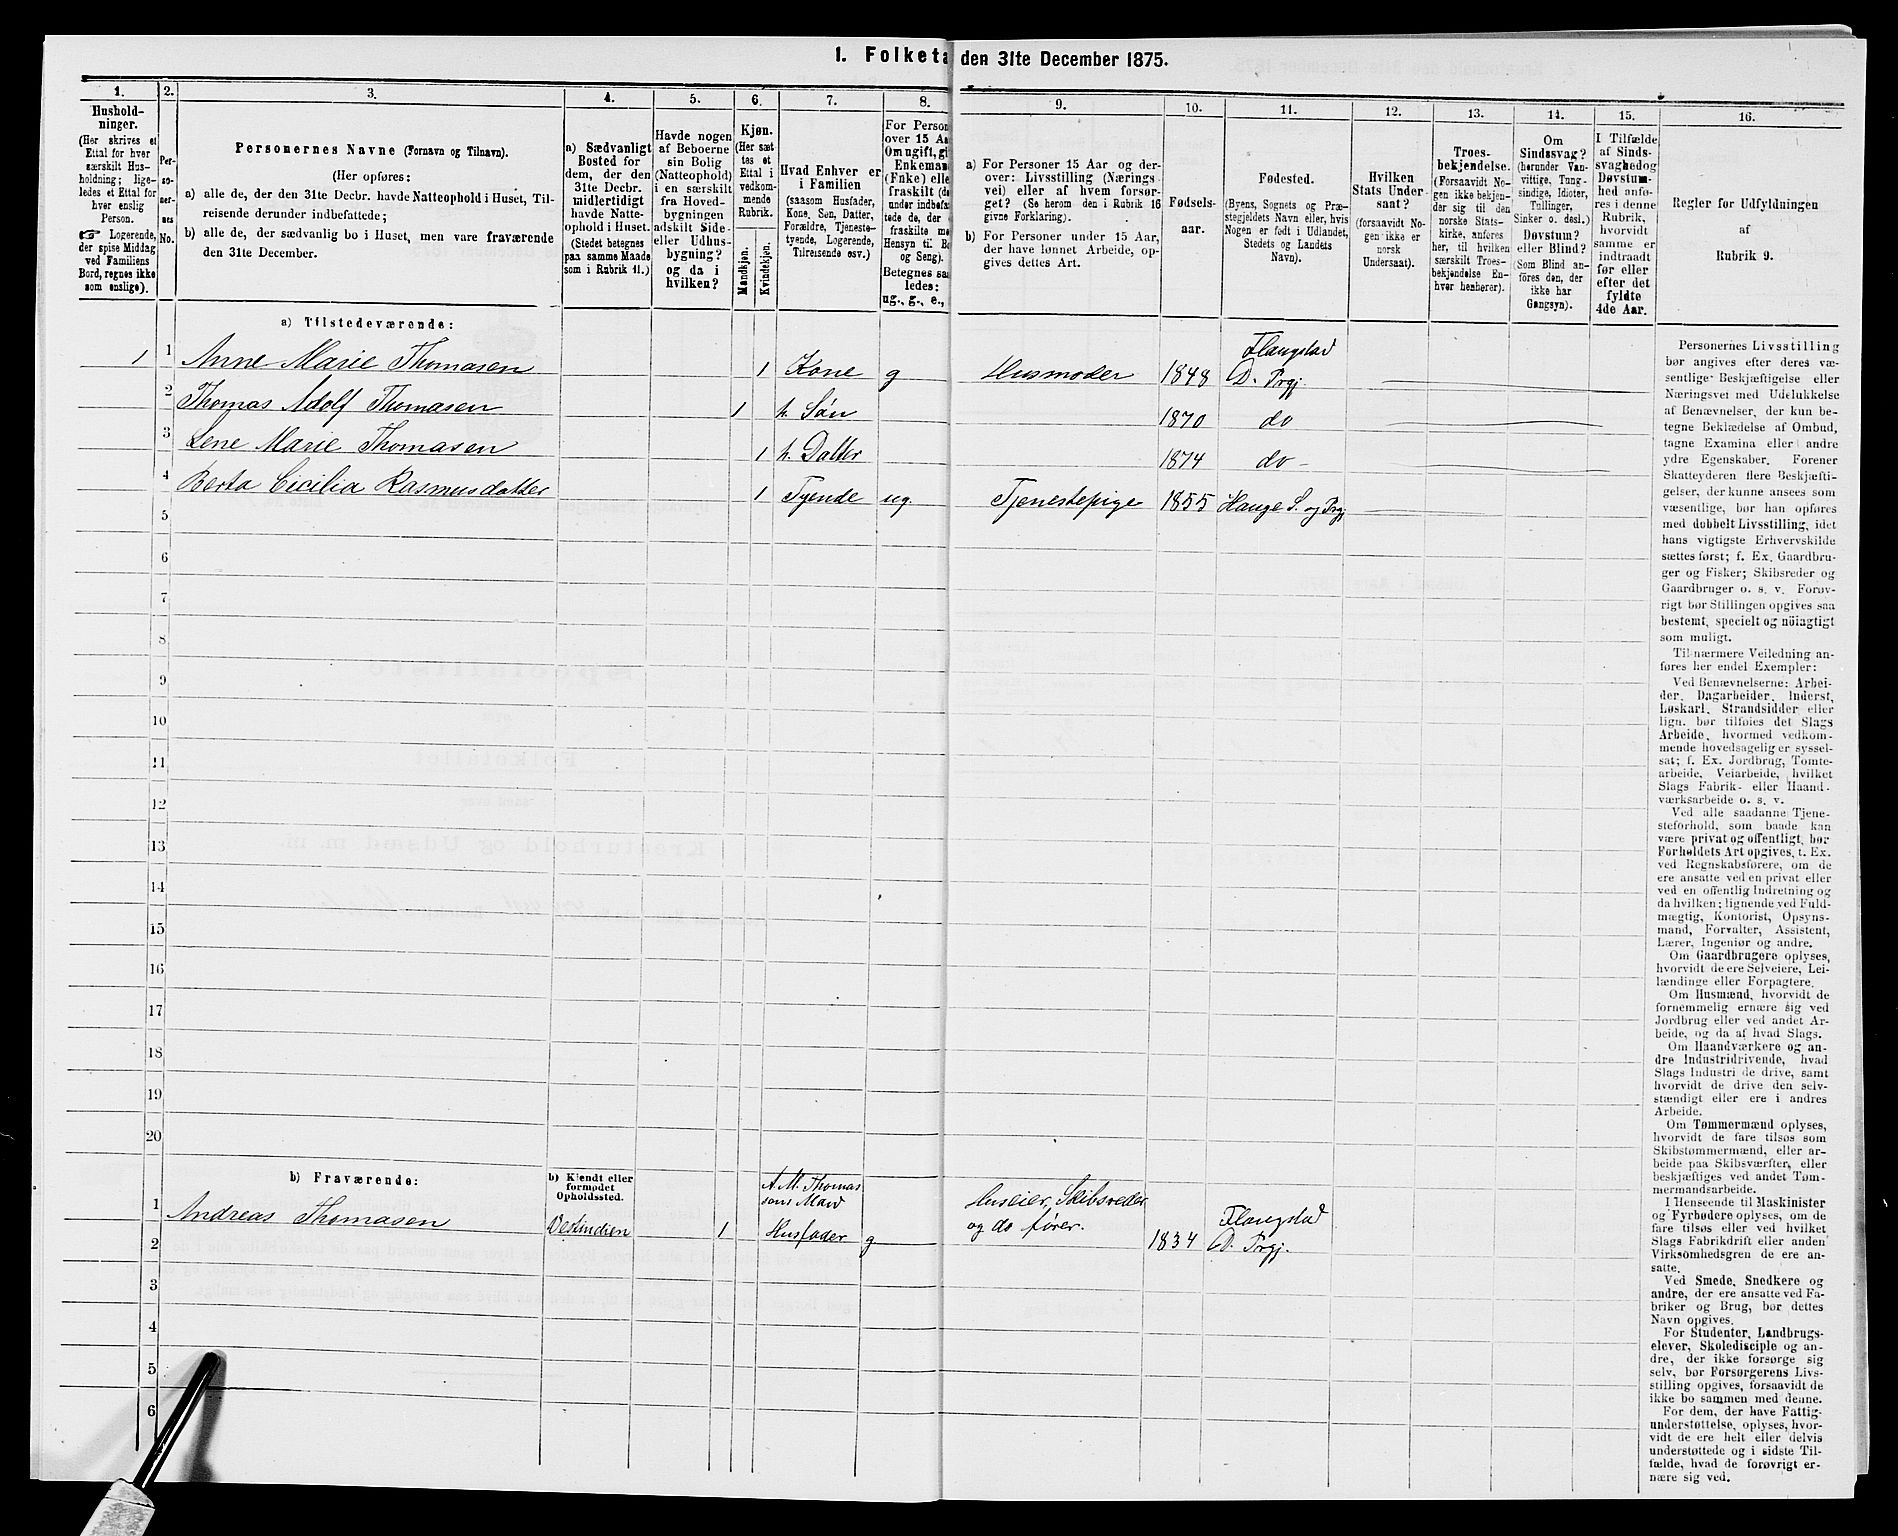 1. Folketa den 31te December 1875.
1.
Hushold-
ninger.
(Her skrives et
Ettal for hver
særskilt Hus-
holdning; lige-
ledes et Ettal for
hver enslig
Person.
☞ Logerende,
der spise Middag
ved Familiens
Bord, regnes ikke
som enslige).
2.
Per-
so-
ner-
nes
No.
3.
Personernes Navne (Fornavn og Tilnavn).
(Her opføres:
a) alle de, der den 31te Decbr. havde Natteophold i Huset, Til-
reisende derunder indbefattede;
b) alle de, der sædvanlig bo i Huset, men vare fraværende
den 31te December.
4.
a) Sædvanligt
Bosted for
dem, der den
31te Decbr.
midlertidigt
havde Natte-
ophold i Huset.
(Stedet betegnes
paa samme Maade
som i Rubrik 11.)
5.
Havde nogen
af Beboerne
sin Bolig
(Natteophold)
i en særskilt
fra Hoved-
bygningen
adskilt Side-
eller Udhus-
bygning?
og da i
hvilken?
6.
Kjøn.
(Her sæt-
tes et
Ettal i
vedkom-
mende
Rubrik.
Mandkjøn.
Kvindekjøn.
7.
Hvad Enhver er
i Familien
(saasom Husfader,
Kone, Søn, Datter,
Forældre, Tjeneste-
tyende, Logerende,
Tilreisende osv.)
8.
For Person
over 15 Aa
Om ugift, gi
Enkeman
(Enke) elle
fraskilt (de
under indbefat
tede de, der e
fraskilte me
Hensyn til Bo
og Seng).
Betegnes saa
ledes:
ug., g., e.,
9.
a) For Personer 15 Aar og der-
over: Livsstilling (Nærings-
vei) eller af hvem forsør-
get? (Se herom den i Rubrik 16
givne Forklaring).
b) For Personer under 15 Aar,
der have lønnet Arbeide, op-
gives dettes Art.
10.
Fødsels-
aar.
11.
Fødested.
(Byens, Sognets og Præ-
stegjeldets Navn eller, hvis
Nogen er født i Udlandet,
Stedets og Landets
Navn).
12.
Hvilken
Stats Under-
saat?
(forsaavidt No-
gen ikke er
norsk
Undersaat).
13.
Troes-
bekjendelse.
(Forsaavidt No-
gen ikke bekjen-
der sig til den
norske Stats-
kirke, anføres
her, til hvilken
særskilt Troes-
bekjendelse En-
hver henhører).
14.
Om
Sindssvag?
(herunder Van-
vittige, Tung-
sindige, Idioter,
Tullinger,
Sinker o. desl.)
Døvstum?
eller Blind?
(Som Blind an-
føres den, der
ikke har
Gangsyn).
15.
I Tilfælde
af Sinds-
svaghed og
Døvstum-
hed anfø-
res i denne
Rubrik,
hvorvidt
samme er
indtraadt
før eller
efter det
fyldte
4de Aar.
16.
Regler for Udfyldningen
af
Rubrik 9.
a) Tilstedeværende:
1 1 Anne Marie Thomasen 1 Kone g Husmoder 1848 Flaugstad D. Prgj
2 Thomas Adolf Thomasen 1 h. Søn 1870 do
3 Lene Marie Thomasen 1 h. Datter 1874 do -
4 Berta Cicilia Rasmusdatter 1 Tyende ug. Tjenestepige 1855 Hauge S. og Prgj
5
6
7
8
9
10
11
12
13
14
15
16
17
18
19
20
b) Fraværende:
b) Kjendt eller
formodet
Opholdssted.
1 Andreas Thomasen Vestindien 1 A. M. Thomas
sens Mand
Husfader g Huseier, Skibsreder
og do fører. 1834 Flaugstad
D. Prgj.
2
3
4
5
6
Personernes Livsstilling
bør angives efter deres væ-
sentlige Beskjæftigelse eller
Næringsvei med Udelukkelse
af Benævnelser, der kun be-
tegne Beklædelse af Ombud,
tagne Examina eller andre
ydre Egenskaber. Forener
Skatteyderen flere Beskjæfti-
gelser, der kunne ansees som
væsentlige, bør han opføres
med dobbelt Livsstilling, idet
hans vigtigste Erhvervskilde
sættes først; f. Ex. Gaardbru-
ger og Fisker; Skibsreder og
Gaardbruger o. s. v. Forøv-
rigt bør Stillingen opgives saa
bestemt, specielt og nøiagtigt
som muligt.
Til nærmere Veiledning an-
føres her endel Exempler:
Ved Benævnelserne: Arbei-
der, Dagarbeider, Inderst,
Løskarl, Strandsidder eller
lign. bør tilføies det Slags
Arbeide, hvormed vedkom-
mende hovedsagelig er syssel-
sat; f. Ex. Jordbrug, Tomte-
arbeide, Veiarbeide, hvilket
Slags Fabrik- eller Haand-
værksarbeide o. s. v.
Ved alle saadanne Tjene-
steforhold, som baade kan
være privat og offentligt, bør
Forholdets Art opgives, t. Ex.
ved Regnskabsførere, om de
ere ansatte ved en privat eller
ved en offentlig Indretning og
da hvilken; lignende ved Fuld-
mægtig, Kontorist, Opsyns-
mand, Forvalter, Assistent,
Lærer, Ingeniør og andre.
Om Gaardbrugere oplyses,
hvorvidt de ere Selveiere, Lei-
lændinge eller Forpagtere.
Om Husmænd, hvorvidt de
fornemmelig ernære sig ved
Jordbrug eller ved andet Ar-
beide, og da af hvad Slags.
Om Haandværkere og an-
dre Industridrivende, hvad
Slags Industri de drive, samt
hvorvidt de drive den selv-
stændigt eller ere i andres
Arbeide.
Om Tømmermænd oplyses,
hvorvidt de fare tilsøs som
Skibstømmermænd, eller ar-
beide paa Skibsværfter, eller
beskjæftiges ved andet Tøm-
mermandsarbeide.
I Henseende til Maskinister
og Fyrbødere oplyses, om de
fare tilsøs eller ved hvilket
Slags Fabrikdrift eller anden
Virksomhedsgren de ere an-
satte.
Ved Smede, Snedkere og
andre, der ere ansatte ved Fa-
briker og Brug, bør dettes
Navn opgives.
For Studenter, Landbrugs-
elever, Skoledisciple og an-
dre, der ikke forsørge sig
selv, bør Forsørgerens Livs-
stilling opgives, forsaavidt de
ikke bo sammen med denne.
For dem, der have Fattig-
understøttelse, oplyses, hvor-
vidt de ere helt eller delvis
understøttede og i sidste Til-
fælde, hvad de forøvrigt er-
nære sig ved.